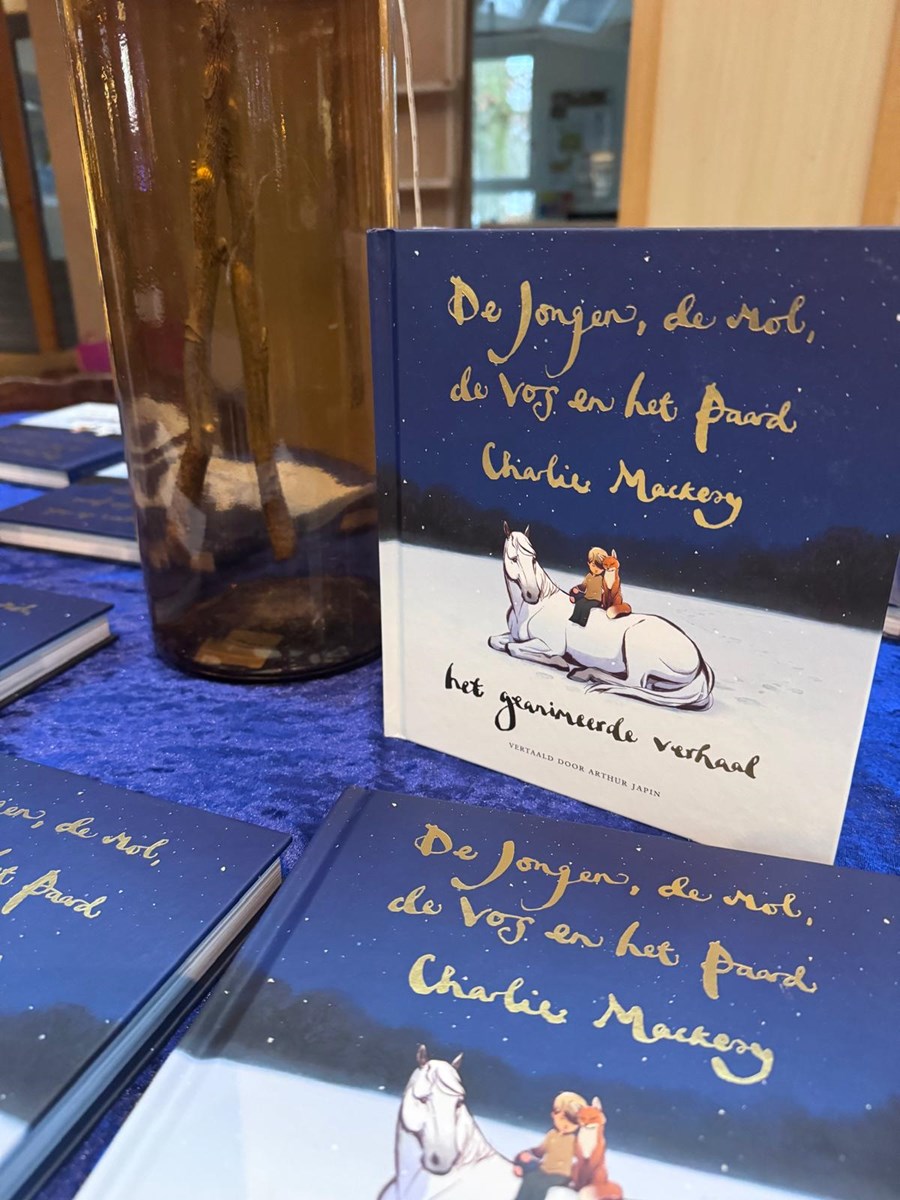 De Jongen, de Mol,
de Vos en het Paard
Charlie Mackesy
het geanimeerde verhaal
VERTAALD DOOR ARTHUR JAPIN
De Jongen, de Mol,
de Vos en het Paard
Charlie Mackesy
de Mol,
Paard